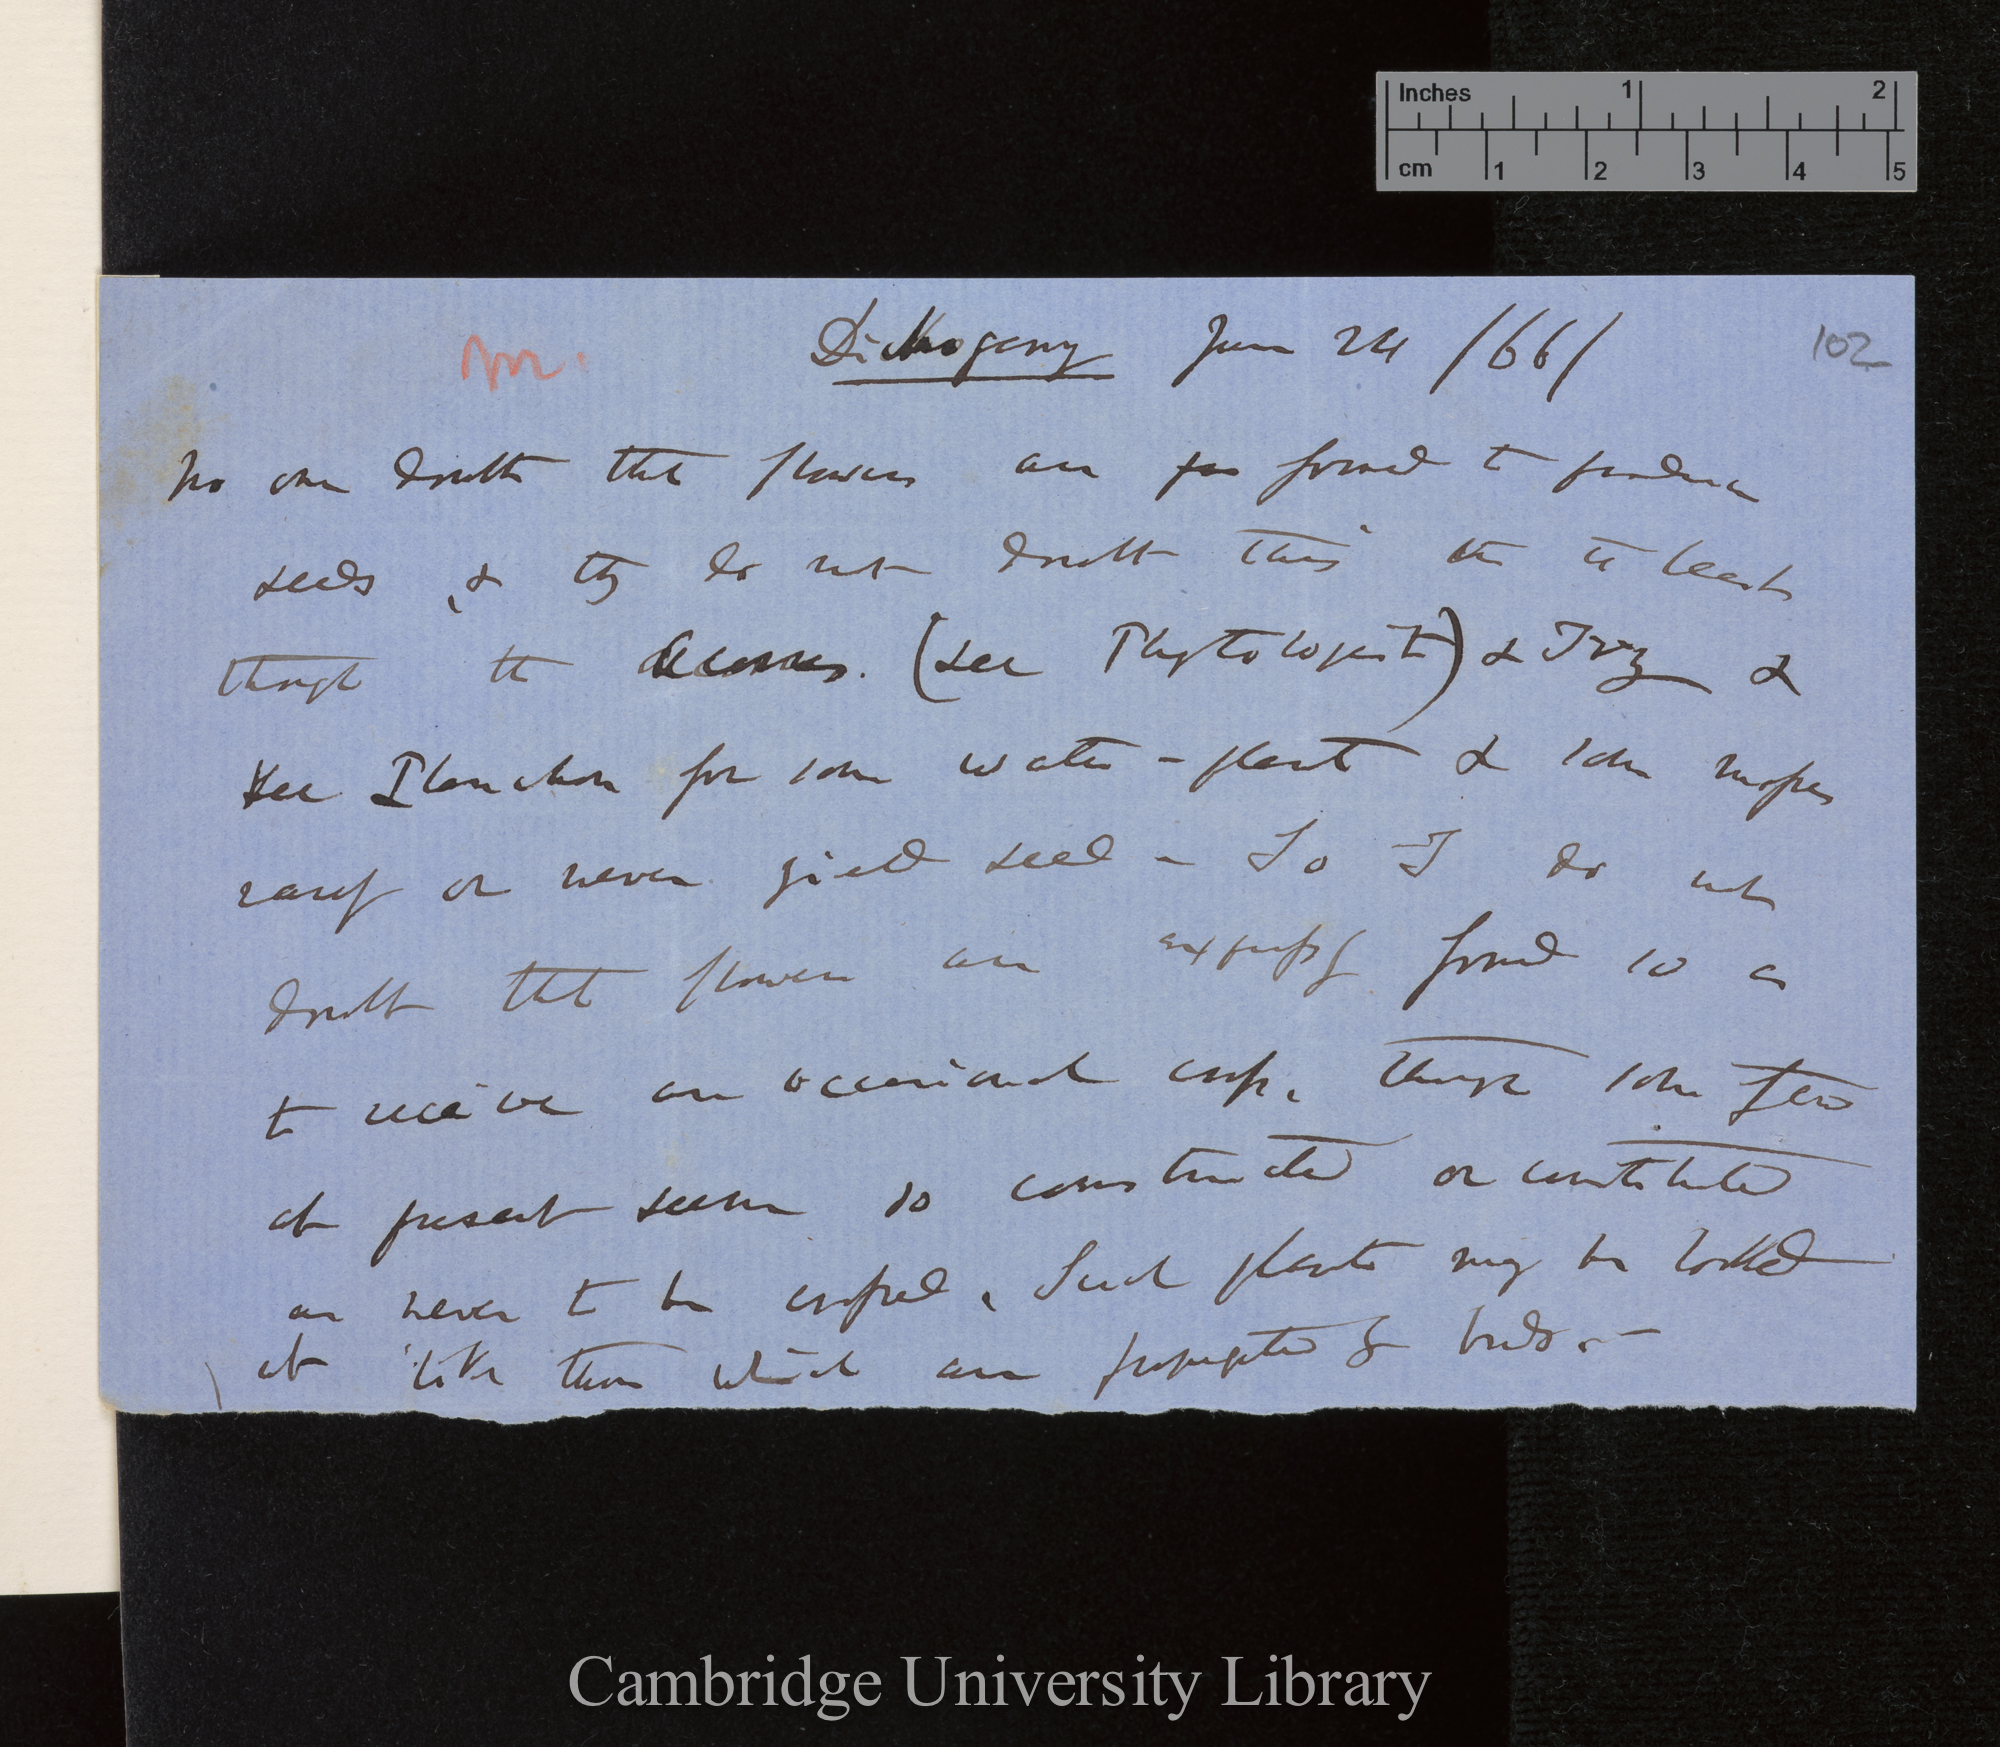 Inches 1 2
cm 1 2 3 4 5
Dichogamy June 24 /66/
102
No one doubts that flowers are formed to produce
seeds, & they do not doubt this in the least
though the Acorus. (see Phytologist) & Ivy &
see Planchon for some water-plants & some mosses
rarely or never yield seed - So I do not
doubt that flowers are expressly formed so as
to receive an occasional cross, though some few
at present seem so constructed or constituted
as never to be crossed. Such plants may be looked
at like those which are propagated by buds.—
Cambridge University Library